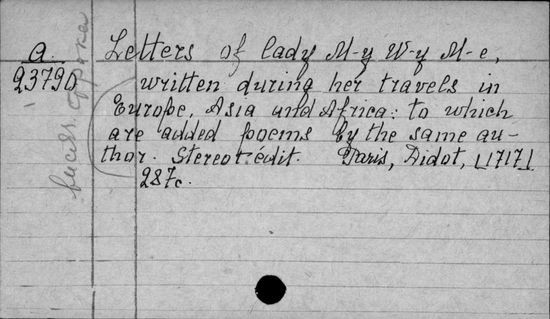 a. Letters of lady M-y W-y M-e,
23790 written during her travels in
Europe, Asia and Africa: to which
are added poems by the same au-
thor. Stereot. édit. Paris, Didot, [1717]
287c.